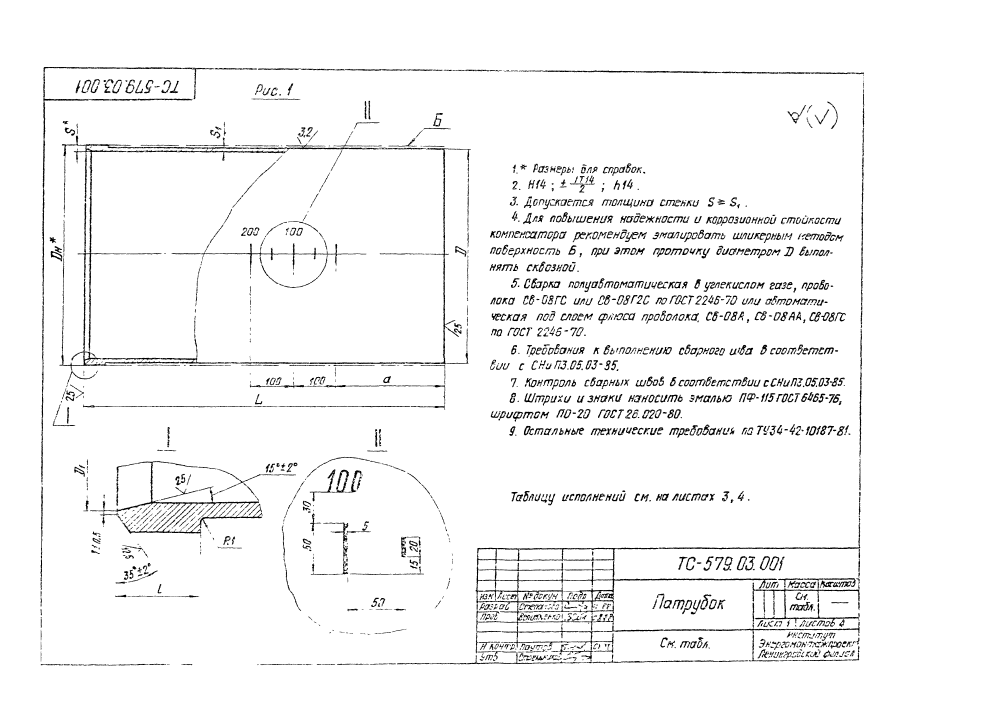 ТС-579.03.001
Рис. 1
S*
S1
3,2
II
Б
Dн*
200
100
D
25
100
100
a
25
L
I
I
II
D1
25
15°±2°
1±0,5
R1
35°±2°
L
100
30
50
5
15
20
50
1.* Размеры для справок.
2. Н14 ; ± IT14/2 ; h14 .
3. Допускается толщина стенки S = S1 .
4. Для повышения надежности и коррозионной стойкости
компенсатора рекомендуем эмалировать шликерным методом
поверхность Б, при этом проточку диаметром D выпол-
нять сквозной.
5. Сварка полуавтоматическая в углекислом газе, прово-
лока СВ-08ГС или СВ-08Г2С по ГОСТ 2246-70 или автомати-
ческая под слоем флюса проволока, СВ-08А, СВ-08АА, СВ-08ГС
по ГОСТ 2246-70.
6. Требования к выполнению сварного шва в соответст-
вии с СНиП3.05.03-85.
7. Контроль сварных швов в соответствии с СНиП3.05.03-85.
8. Штрихи и знаки наносить эмалью ПФ-115 ГОСТ 6465-76,
шрифтом ПО-20 ГОСТ 26.020-80.
9. Остальные технические требования по ТУ34-42-10187-81.
Таблицу исполнений см. на листах 3, 4 .
ТС-579.03.001
Патрубок
Лит Масса Масштаб
См.
табл. —
Изм Лист № докум Подп Дата
Разраб Степанова
Пров
Лист 1 Листов 4
Н контр Паутов
Утв
См. табл.
Институт
Энергомонтажпроект
Ленинградский филиал